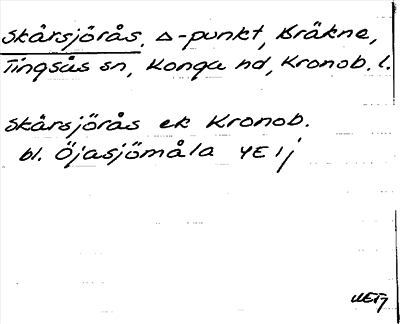 Skårsjörås, Δ-punkt, Bräkne,
Tingsås sn, Konga hd, Kronob. l.
Skårsjörås ek Kronob.
bl. Öjasjömåla 4E1j